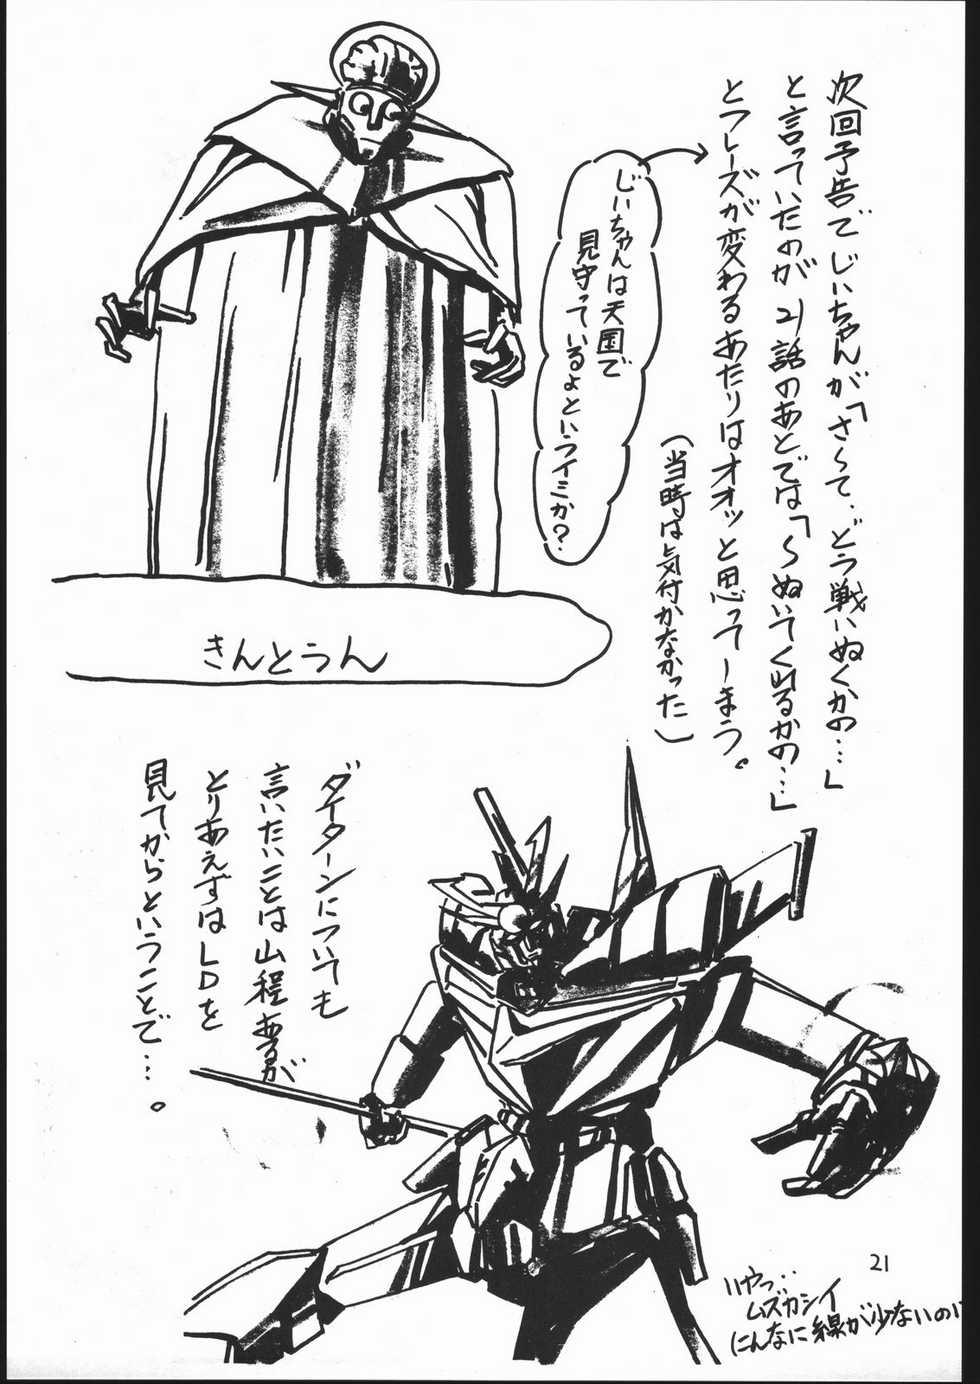 次回予告でじいちゃんが「さぁて、どう戦いぬくかの…」
と言っていたのが21話のあとでは「〜ぬいてくれるかの…」
とフレーズが変わるあたりはオオッと思ってしまう。
(当時は気付かなかった)
じいちゃんは天国で
見守っているよというイミか?
きんとうん
ダイターンについても
言いたいことは山程あるが
とりあえずはLDを
見てからということで…。
いやっ‥
ムズカシイ
(こんなに線が少ないのに
21